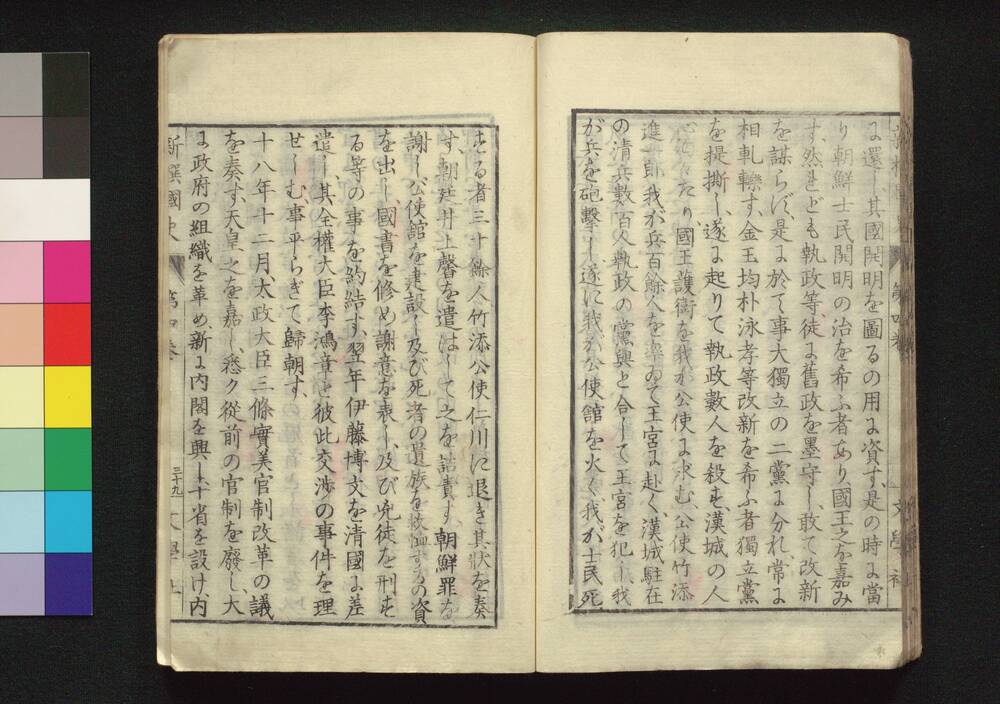 に還し其國開明を圖るの用に資す、是の時に當
り朝鮮士民開明の治を希ふ者あり國王之を嘉み
す、然れども執政等、徒に舊政を墨守し、敢て改新
を謀らず、是に於て事大獨立の二黨に分れ、常に
相軋轢す、金玉均朴泳孝等改新を希ふ者獨立黨
を提撕し、遂に起りて執政數人を殺す、漢城の人
たり國王護衛を我が公使に求む、公使竹添
進一郎我が兵百餘人を率ゐて王宮に赴く、漢城駐在
の清兵數百人執政の黨與と合して王宮を犯し我
が兵を砲擊し遂に我が公使館を火く我が士民死
する者三十餘人、竹添公使仁川に退き其狀を奏
す、朝廷井上馨を遣はして之を詰責す、朝鮮罪を
謝し、公使館を建設し及び死者の遺族を救恤するの資
を出し、國書を修め謝意を表し、及び兇徒を刑す
る等の事を約結す、翌年伊藤博文を清國に差
遣し其全權大臣李鴻章と彼此交渉の事件を理
せしむ、事平らぎて歸朝す、
十八年十二月、太政大臣三條實美官制改革の議
を奏す、天皇之を嘉し、悉ク從前の官制を廢し、大
に政府の組織を革め、新に内閣を興し十省を設け、内
新撰國史 第四卷 三十九 文學社